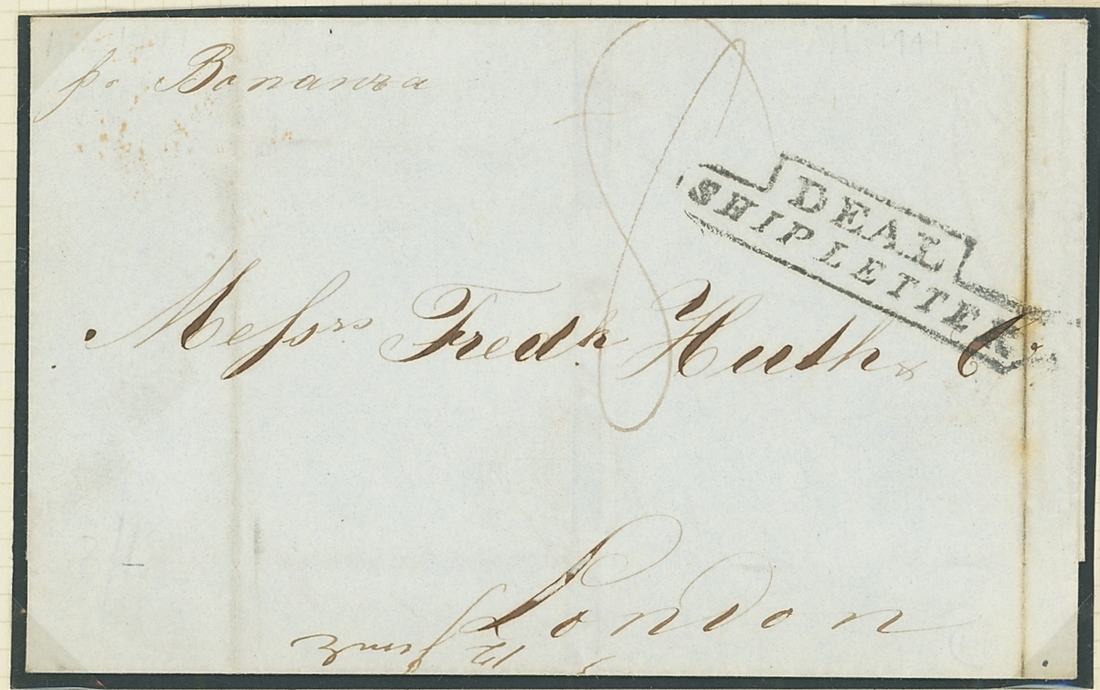 pr Bonanza
8
DEAL
SHIP LETTER
Messrs Fredk Huth & Co
London